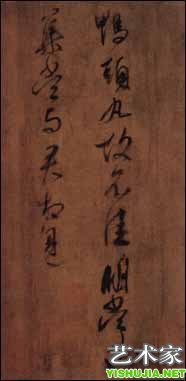 鸭頭丸故不佳明當
集當与君相見
艺术家
YISHUJIA.NET